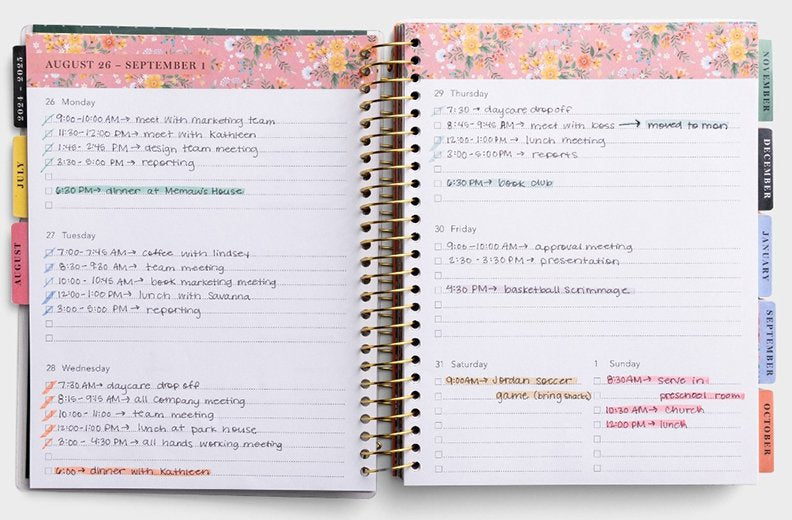 AUGUST 26 – SEPTEMBER 1
2024 - 2025
JULY
AUGUST
26 Monday
9:00-10:00 AM → meet with marketing team
11:30-12:00 PM → meet with Kathleen
1:45-2:45 PM → design team meeting
3:30-5:00 PM → reporting
6:30 PM → dinner at Memaw's House
27 Tuesday
7:00-7:45 AM → coffee with lindsey
8:30-9:30 AM → team meeting
10:00-10:45 AM → book marketing meeting
12:00-1:00 PM → lunch with Savanna
3:00-5:00 PM → reporting
28 Wednesday
7:30 AM → daycare drop off
8:15-9:15 AM → all company meeting
10:00-11:00 → team meeting
12:00-1:00 PM → lunch at park house
3:00-4:30 PM → all hands working meeting
6:00 → dinner with Kathleen
29 Thursday
7:30 → daycare drop off
8:45-9:45 AM → meet with boss → moved to mon
12:00-1:00 PM → lunch meeting
3:00-5:00 PM → reports
6:30 PM → book club
30 Friday
9:00-10:00 AM → approval meeting
2:30-3:30 PM → presentation
4:30 PM → basketball scrimmage
31 Saturday
9:00AM → Jordan soccer
game (bring snacks)
1 Sunday
8:30AM → serve in
preschool room
10:30 AM → church
12:00 PM → lunch
NOVEMBER
DECEMBER
JANUARY
SEPTEMBER
OCTOBER